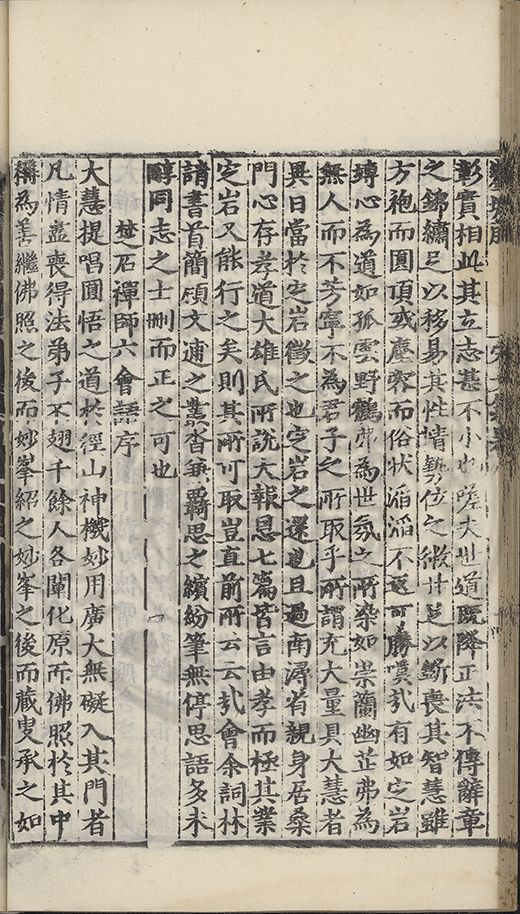 彰實相此其立志甚不小也嗟夫世道既降正法不傳辭章
之錦繡足以移易其性情勢位之紛廿足以斲喪其智慧雖
方袍而圓頂或塵容而俗状滔滔不返可勝嘆㢤有如㝎岩
摶心為道如孤雲野鶴弗為世氛之所染如崇蘭幽芷弗為
無人而不芳寧不為君子之所取乎所謂充大量具大慧者
異日當於㝎岩徵之也㝎岩之還也且過南潯省親身居桑
門心存孝道大雄氏所說大報恩七篇皆言由孝而極其業
㝎岩又能行之矣則其所可取豈直前所云云㢤會余詞林
請書首簡傾文逋之叢沓兼覊思之繽紛筆無停思語多未
醇同志之士刪而正之可也
楚石禪師六會語序
大慧提唱圓悟之道於徑山神機妙用廣大無礙入其門者
凡情盡喪得法弟子不翅千餘人各闡化原而佛照於其中
稱為善繼佛照之後而妙峯紹之妙峯之後而蔵叟承之如